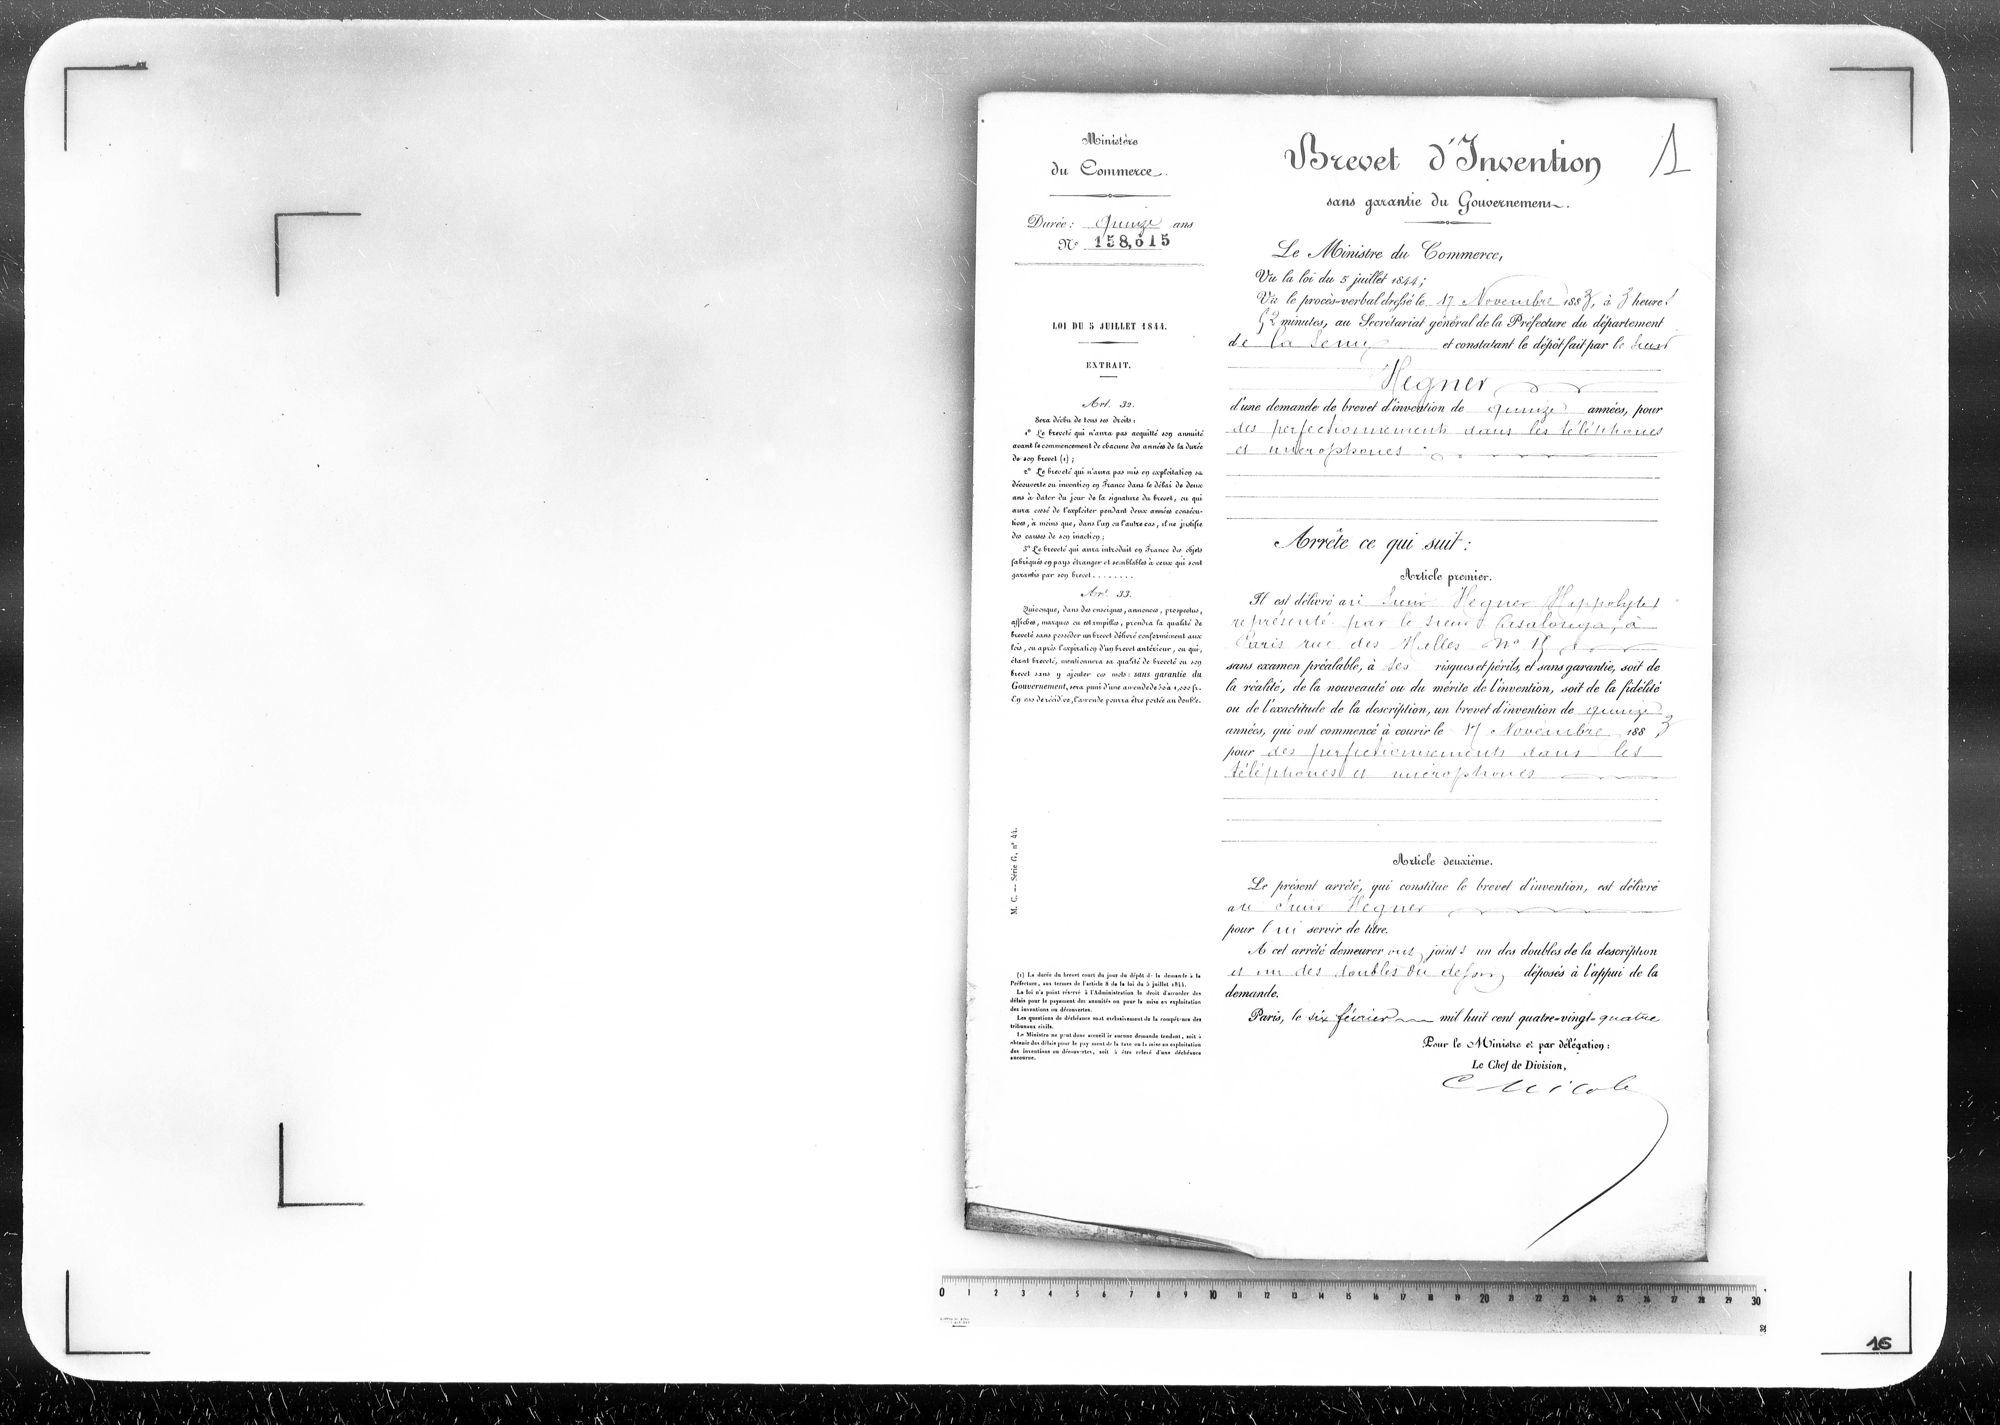 Ministère
du Commerce.
Durée : quinze ans
N° 158,615
LOI DU 5 JUILLET 1844.
EXTRAIT.
Art. 32.
Sera déchu de tous ses droits :
1° Le breveté qui n'aura pas acquitté son annuité
avant le commencement de chacune des années de la durée
de son brevet (1) ;
2° Le breveté qui n'aura pas mis en exploitation sa
découverte ou invention en France dans le délai de deux
ans à dater du jour de la signature du brevet, ou qui
aura cessé de l'exploiter pendant deux années consécu-
tives, à moins que, dans l'un ou l'autre cas, il ne justifie
des causes de son inaction ;
3° Le breveté qui aura introduit en France des objets
fabriqués en pays étranger et semblables à ceux qui sont
garantis par son brevet . . . . . . . .
Art. 33.
Quiconque, dans des enseignes, annonces, prospectus,
affiches, marques ou estampilles, prendra la qualité de
breveté sans posséder un brevet délivré conformément aux
lois, ou après l'expiration d'un brevet antérieur, ou qui,
étant breveté, mentionnera sa qualité de breveté ou son
brevet sans y ajouter ces mots : sans garantie du
Gouvernement, sera puni d'une amende de 50 à 1,000 fr.
En cas de récidive, l'amende pourra être portée au double.
M. C. — Série G, n° 44.
(1) La durée du brevet court du jour du dépôt de la demande à la
Préfecture, aux termes de l'article 8 de la loi du 5 juillet 1844.
La loi n'a point réservé à l'Administration le droit d'accorder des
délais pour le payement des annuités ou pour la mise en exploitation
des inventions ou découvertes.
Les questions de déchéance sont exclusivement de la compétence des
tribunaux civils.
Le Ministre ne peut donc accueillir aucune demande tendant, soit à
obtenir des délais pour le payement de la taxe ou la mise en exploitation
des inventions ou découvertes, soit à être relevé d'une déchéance
encourue.
Brevet d'Invention
1
sans garantie du Gouvernement.
Le Ministre du Commerce,
Vu la loi du 5 juillet 1844 ;
Vu le procès-verbal dressé le 17 Novembre 1883, à 3 heures
52 minutes, au Secrétariat général de la Préfecture du département
de la Seine et constatant le dépôt fait par le Sieur
Hegner
d'une demande de brevet d'invention de quinze années, pour
des perfectionnements dans les téléphones
et microphones
Arrête ce qui suit :
Article premier.
Il est délivré au Sieur Hegner Hippolyte,
représenté par le sieur Casalonga, à
Paris rue des Halles No 15
sans examen préalable, à ses risques et périls, et sans garantie, soit de
la réalité, de la nouveauté ou du mérite de l'invention, soit de la fidélité
ou de l'exactitude de la description, un brevet d'invention de quinze
années, qui ont commencé à courir le 17 Novembre 1883
pour des perfectionnements dans les
téléphones et microphones
Article deuxième.
Le présent arrêté, qui constitue le brevet d'invention, est délivré
au Sieur Hegner
pour lui servir de titre.
A cet arrêté demeureront joints un des doubles de la description
et un des doubles du dessin déposés à l'appui de la
demande.
Paris, le six février mil huit cent quatre-vingt-quatre
Pour le Ministre et par délégation :
Le Chef de Division,
0 1 2 3 4 5 6 7 8 9 10 11 12 13 14 15 16 17 18 19 20 21 22 23 24 25 26 27 28 29 30
16